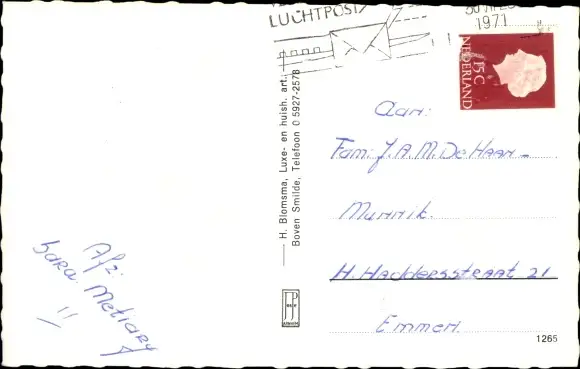 LUCHTPOST
1971
15 C
NEDERLAND
H. Blomsma, Luxe- en huish. art.
Boven Smilde, Telefoon 0 5927-2578
Aan:
Fam. J. A. M. De Haan-
Munnik.
H. Haddersstraat 21
Emmen
Afz.
Sara Metiary
1265